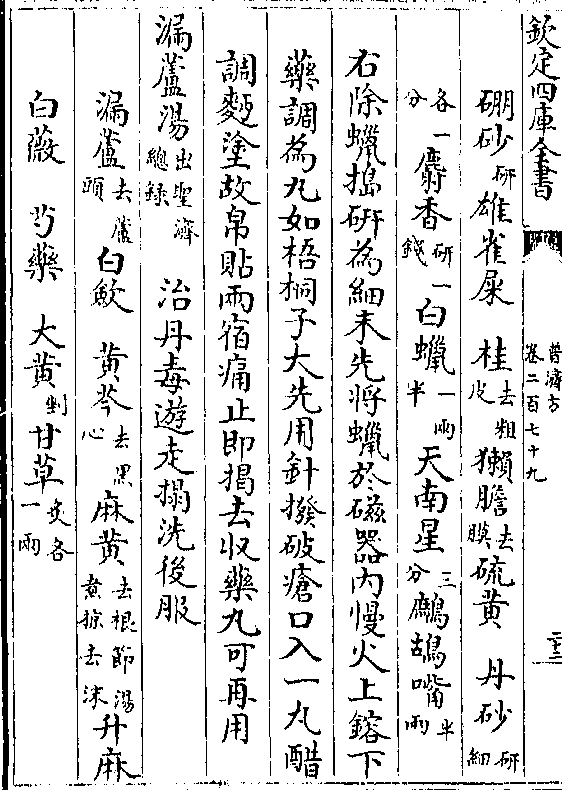 欽定四庫全書
普濟方
卷二百七十九
二十二
硼砂研雄雀屎 桂去粗皮獺膽去膜硫黄 丹砂研細
各一分麝香研一錢白蠟一兩半天南星三分鷓鴣嘴半兩
右除蠟搗研為細末先將蠟於磁器内慢火上鎔下
藥調為丸如梧桐子大先用針撥破瘡口入一丸醋
調麪塗故帛貼兩宿痛止即揭去収藥丸可再用
漏蘆湯出聖濟總錄 治丹毒遊走搨洗後服
漏蘆去蘆頭白斂 黄芩去黑心麻黄去根節湯煮掠去沫升麻
白薇 芍藥 大黄剉甘草炙各一兩